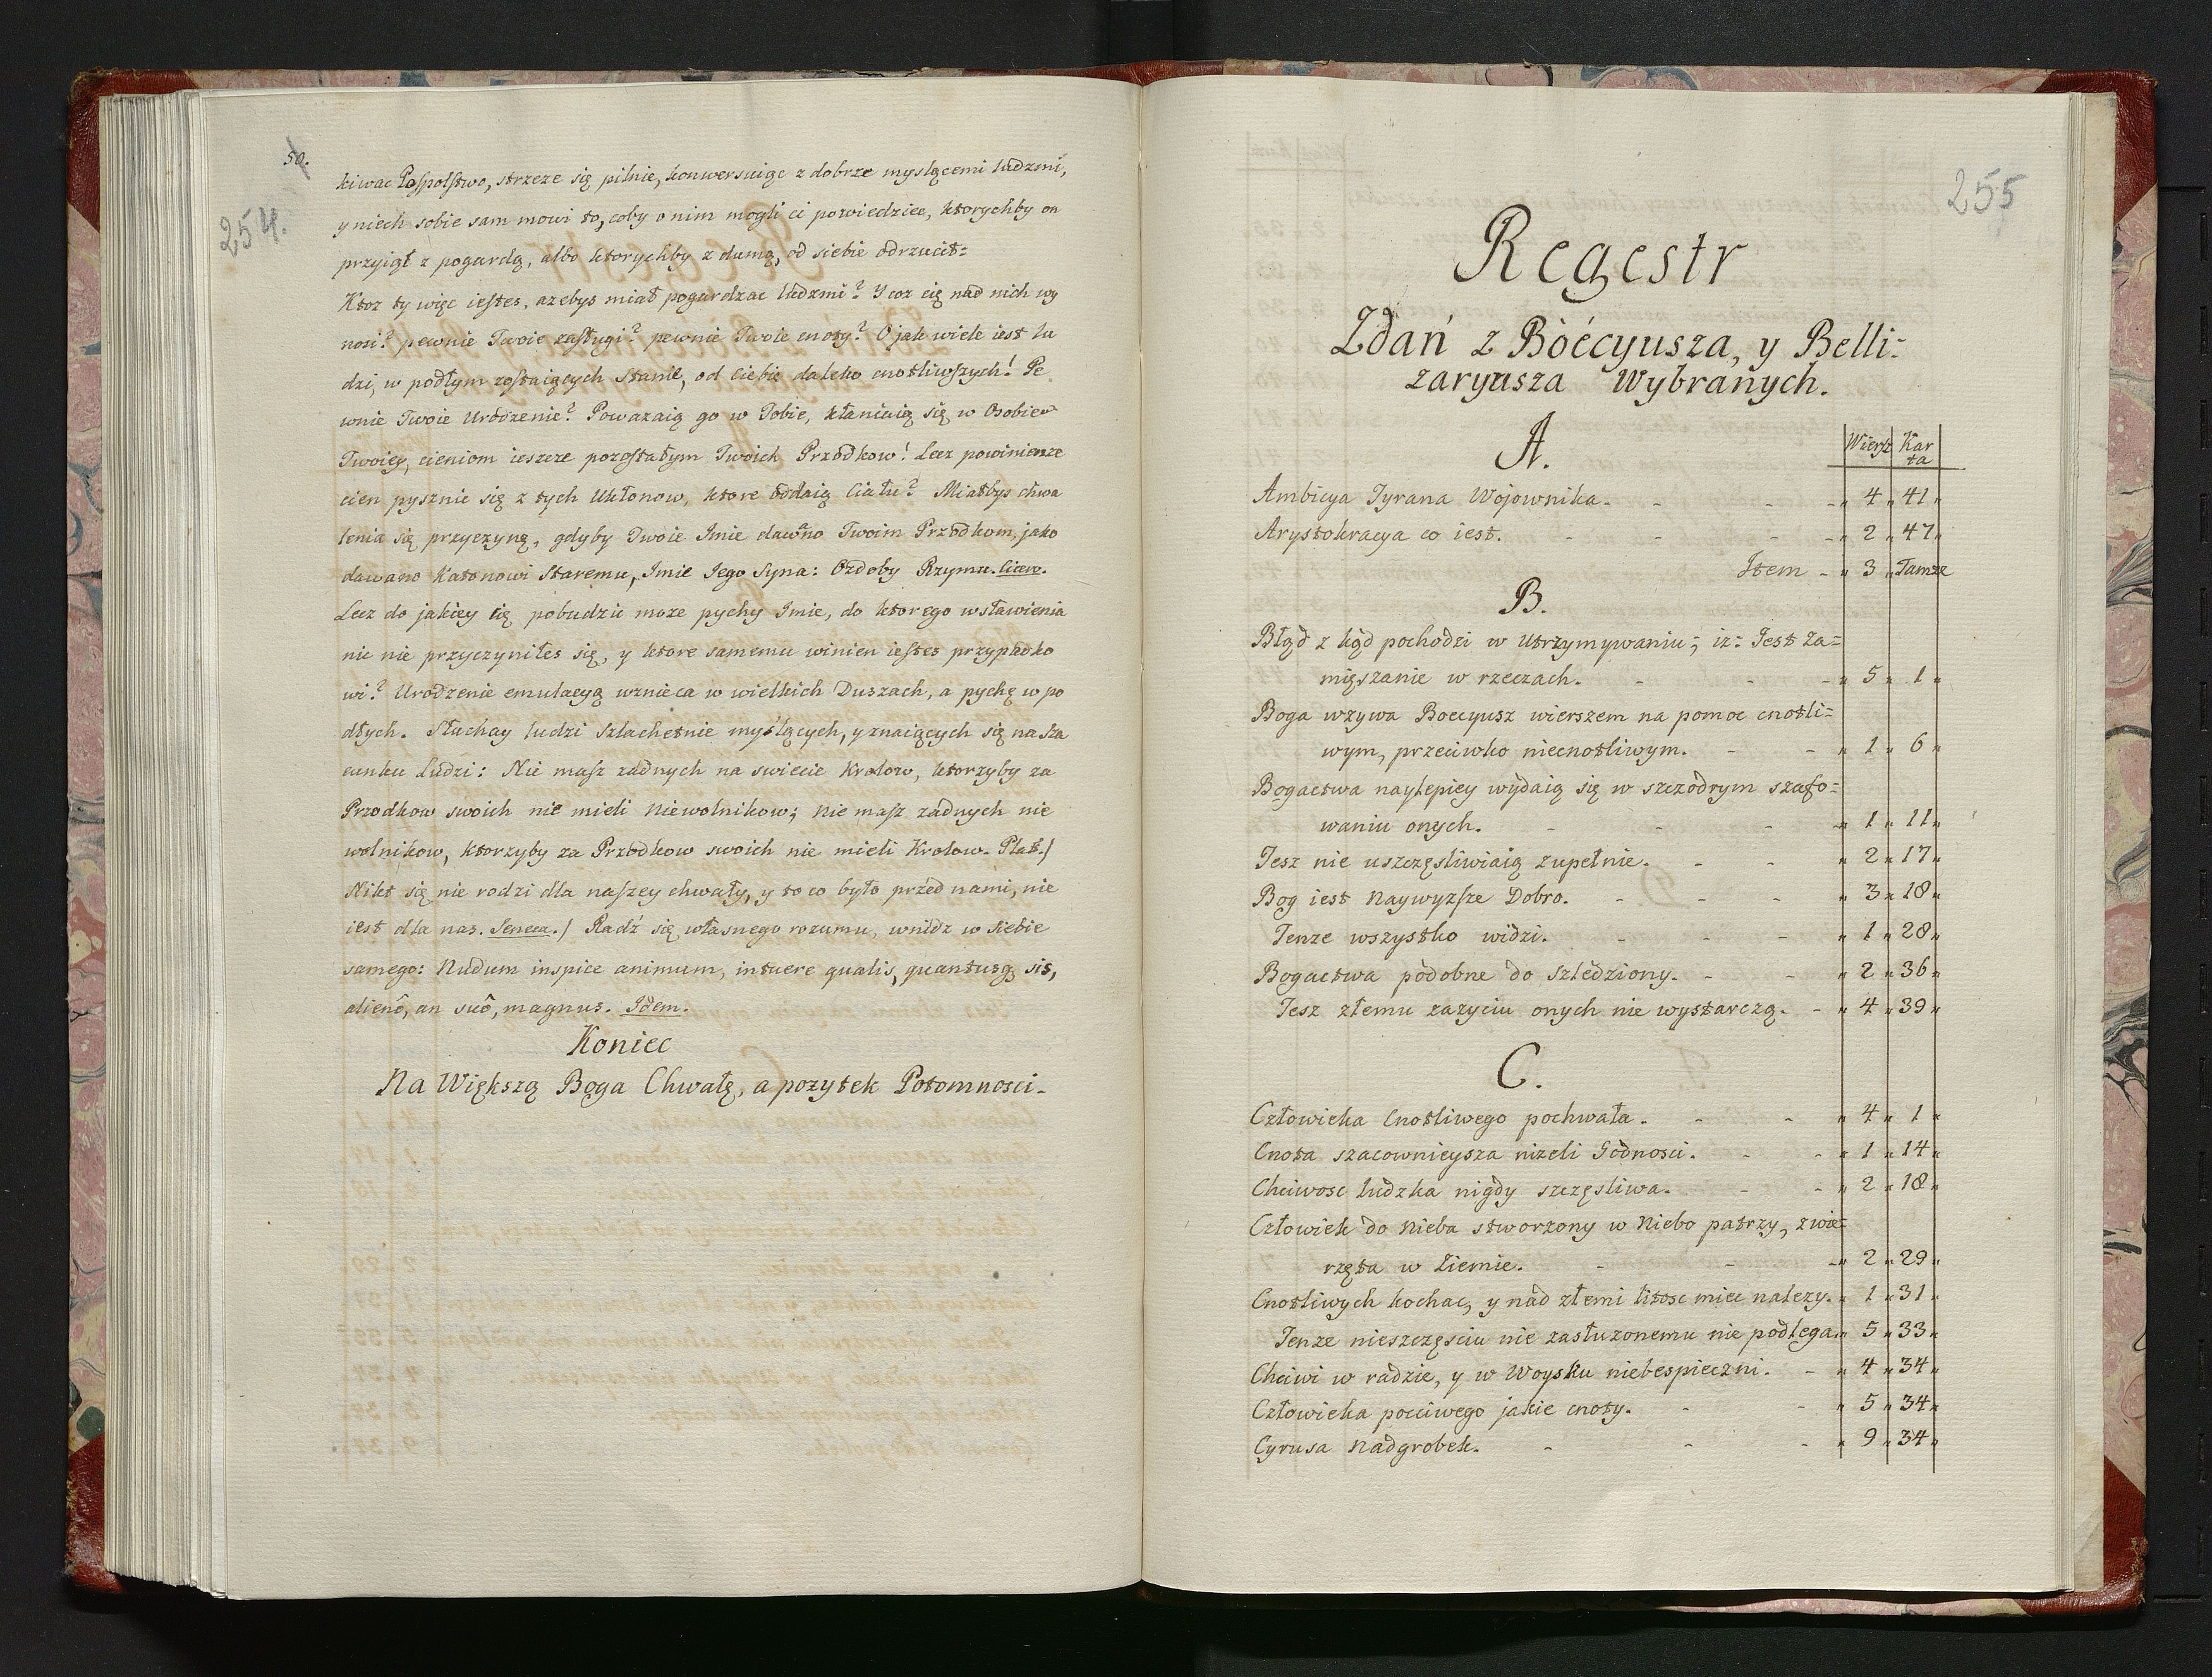 50.
254.
kiwac Pospolstwo, strzeze się pilnie, konwersuiąc z dobrze myslącemi ludzmi,
y niech sobie sam mowi to, coby o nim mogli ci powiedziec, ktorychby on
przyiął z pogardą, albo ktorychby z dumą, od siebie odrzucił:
Ktoz ty więc iestes, azebys miał pogardzac ludzmi? Y coz cię nad nich wy
nosi? pewnie Twoie zasługi? pewnie Twoie cnoty? O jak wiele iest lu
dzi, w podłym zostaiących stanie, od Ciebie daleko cnotliwszych! Pe
wnie Twoie Urodzenie? Powazaią go w Tobie, kłaniaią się w Osobie
Twoiey, cieniom ieszcze pozostałym Twoich Przodkow! Lecz powinienze
cien pysznic się z tych Ukłonow, ktore oddaią Ciału? Miałbys chwa
lenia się przyczynę, gdyby Twoie Imie dawano Twoim Przodkom, jako
dawano Katonowi Staremu, Imie Jego Syna: Ozdoby Rzymu. Cicero.
Lecz do jakiey cię pobudzic moze pychy Imie, do ktorego wsławienia
nic nie przyczyniłes się, y ktore samemu winien iestes przypadko
wi? Urodzenie emulacyą wznieca w wielkich Duszach, a pychę w po
dłych. Słuchay ludzi szlachetnie myślących, y znaiących się na sza
cunku Ludzi: Nie masz zadnych na swiecie Krolow, ktorzyby za
Przodkow swoich nie mieli Niewolnikow; nie masz zadnych nie
wolnikow, ktorzyby za Przodkow swoich nie mieli Krolow. Plat./
Nikt się nie rodzi dla naszey chwały, y to co było przed nami, nie
iest dla nas. Seneca./ Radź się własnego rozumu, wnidz w siebie
samego: Nudum inspice animum, intuere qualis, quantusq3 sit,
alienô, an suô, magnus. Idem.
Koniec
Na Większą Boga Chwałę, a pozytek Potomnosci.
255
Regestr
Zdań z Böécyusza, y Belli:
zaryusza Wybranych.
A.
Wiersz Kar
ta
Ambicya Tyrana Wojownika. - - - 4 " 41 "
Arystokracya co iest. - - - 2 " 47 "
Item - " 3 " Tamze
B.
Błąd z kąd pochodzi w utrzymywaniu; iz: Jest za=
mięszanie w rzeczach. - - - 5 " 1 "
Boga wzywa Boecyusz wierszem na pomoc cnotli=
wym, przeciwko niecnotliwym. - - " 1 " 6 "
Bogactwa naylepiey wydaią się w szczodrym szafo=
waniu onych. - - - 1 " 11 "
Tesz nie uszczęsliwiaią zupełnie. - - " 2 " 17 "
Bog iest Naywyzsze Dobro. - - - " 3 " 18 "
Tenze wszystko widzi. - - - " 1 " 28 "
Bogactwa podobne do szledziony. - - " 2 " 36 "
Tesz złemu zazyciu onych nie wystarczą. - " 4 " 39 "
C.
Człowieka Cnotliwego pochwała. - - " 4 " 1 "
Cnota szacownieysza nizeli Godnosci. - - " 1 " 14 "
Chciwosc ludzka nigdy szczęsliwa. - - " 2 " 18 "
Człowiek do Nieba stworzony w Niebo patrzy, zwie=
rzęta w Ziemie. - - - 2 " 29 "
Cnotliwych kochac, y nad złemi litosc miec nalezy. " 1 " 31 "
Tenze nieszczęsciu nie zasłuzonemu nie podlega. " 5 " 33 "
Chciwi w radzie, y w Woysku niebespieczni. - " 4 " 34 "
Człowieka pocciwego jakie cnoty. - - " 5 " 34 "
Cyrusa Nadgrobek. - - - " 9 " 34 "